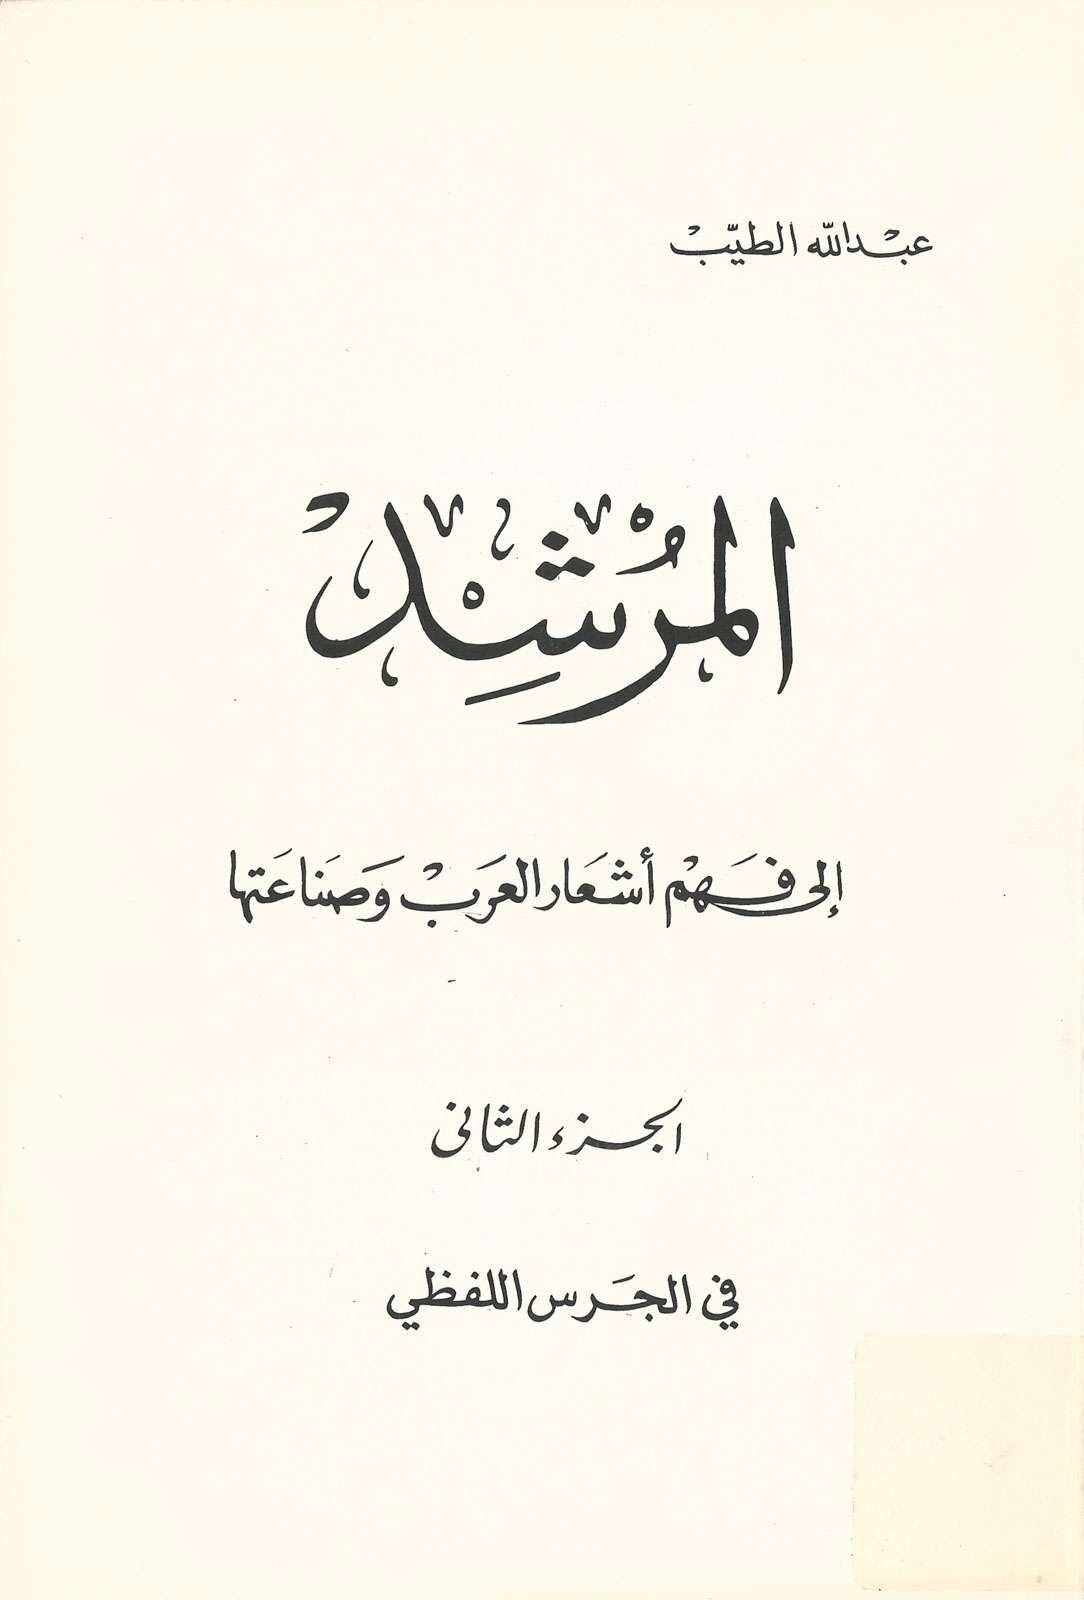 عبْدالله الطيّبْ
المرُشِدْ
إلى فَهْم أشعَار العَربْ وَصَناعَتها
الجزء الثانى
في الجَرس اللفظي